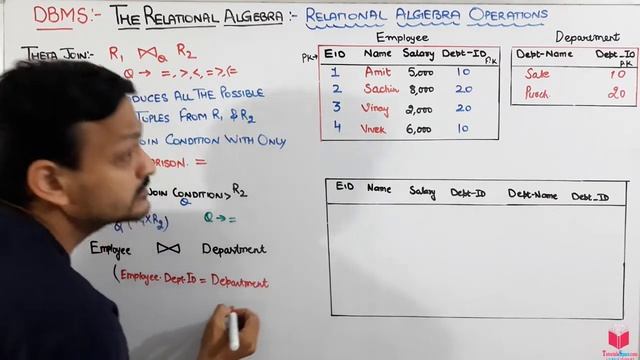 DBMS:- THE RELATIONAL ALGEBRA:- RELATIONAL ALGEBRA OPERATIONS
THETA JOIN:- R1 ⋈Q R2
Q → =, >, <, =>, <=
ODUCES ALL THE POSSIBLE
TUPLES FROM R1 & R2
JOIN CONDITION WITH ONLY
PARISON. =
JOIN CONDITION> R2
Q
Q → =
Q (R1XR2)
Employee ⋈ Department
(Employee.Dept-ID = Department
Employee
PK→ EID Name Salary Dept-ID
F.K
1 Amit 5,000 10
2 Sachin 8,000 20
3 Vinay 2,000 20
4 Vivek 6,000 10
Department
Dept-Name Dept_ID
P.K
Sale 10
Purch. 20
EID Name Salary Dept-ID Dept-Name Dept_ID